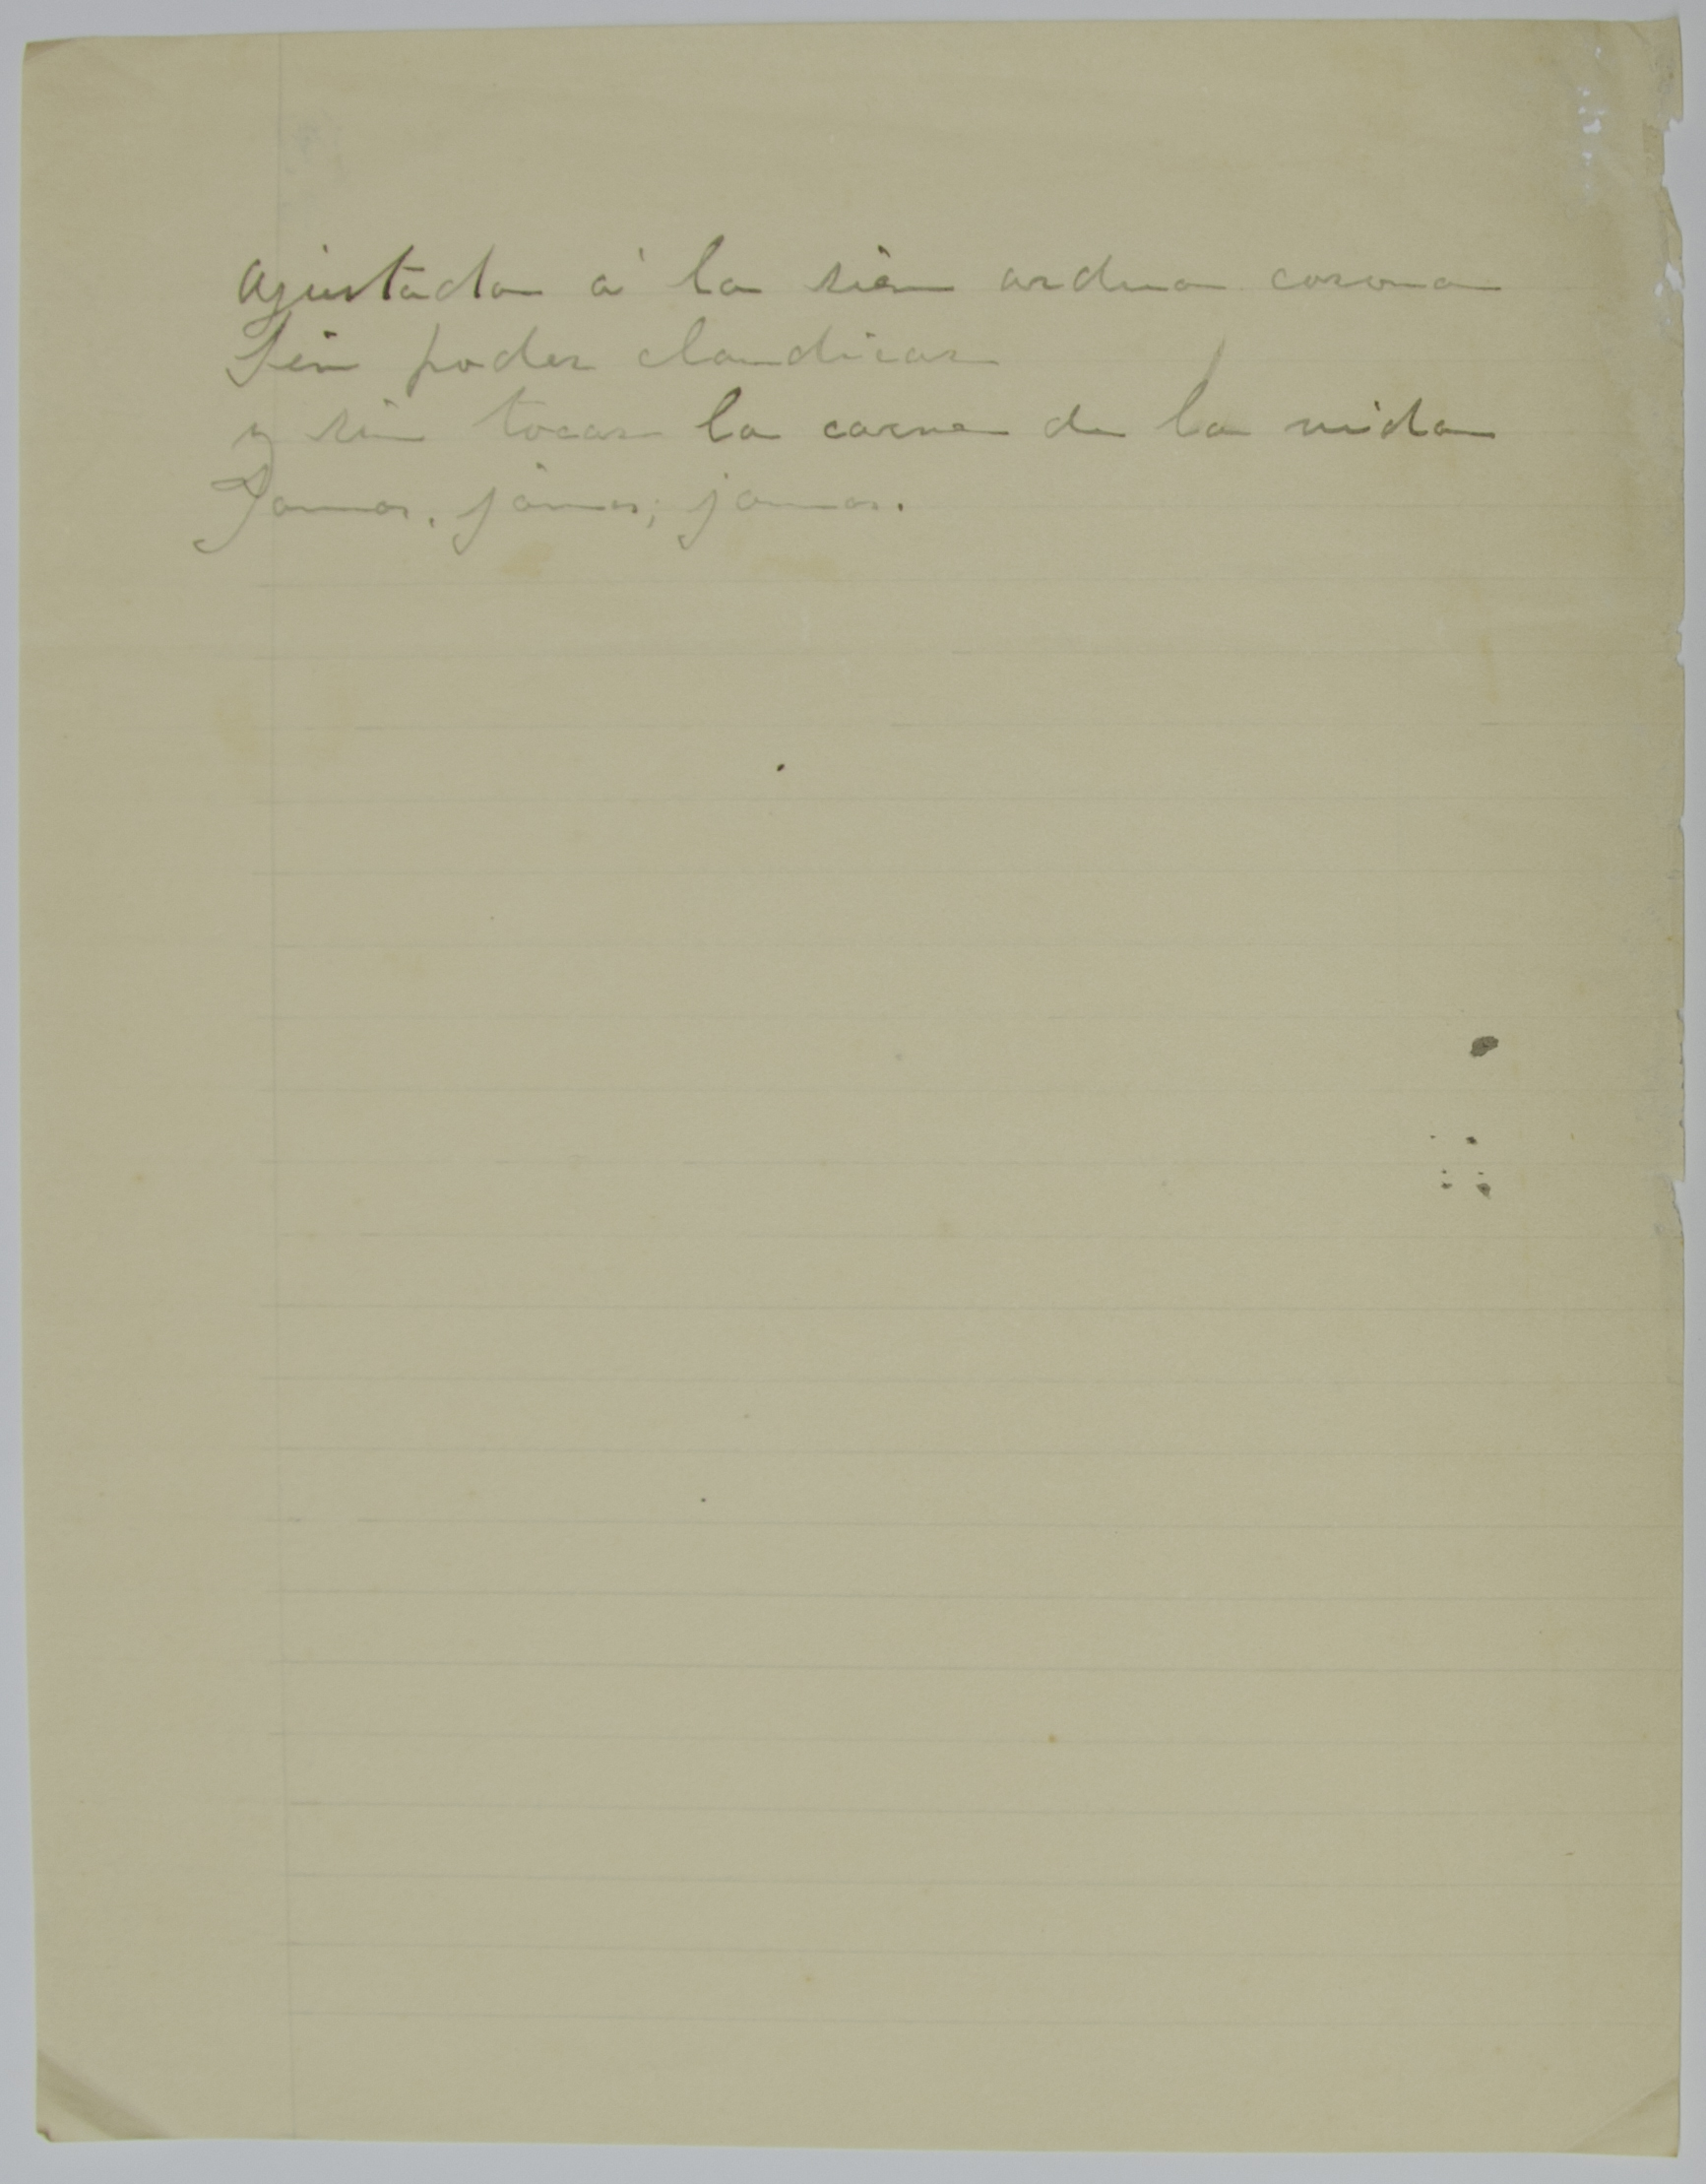 ajustada á la sien ardua corona
Sin poder claudicar
y sin tocar la carne de la vida
Jamas, jamas, jamas.